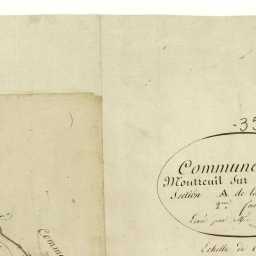 -35
Commune
Montreuil Sur
Section A de la
2.me
Levé par M.
Echelle de
Commu